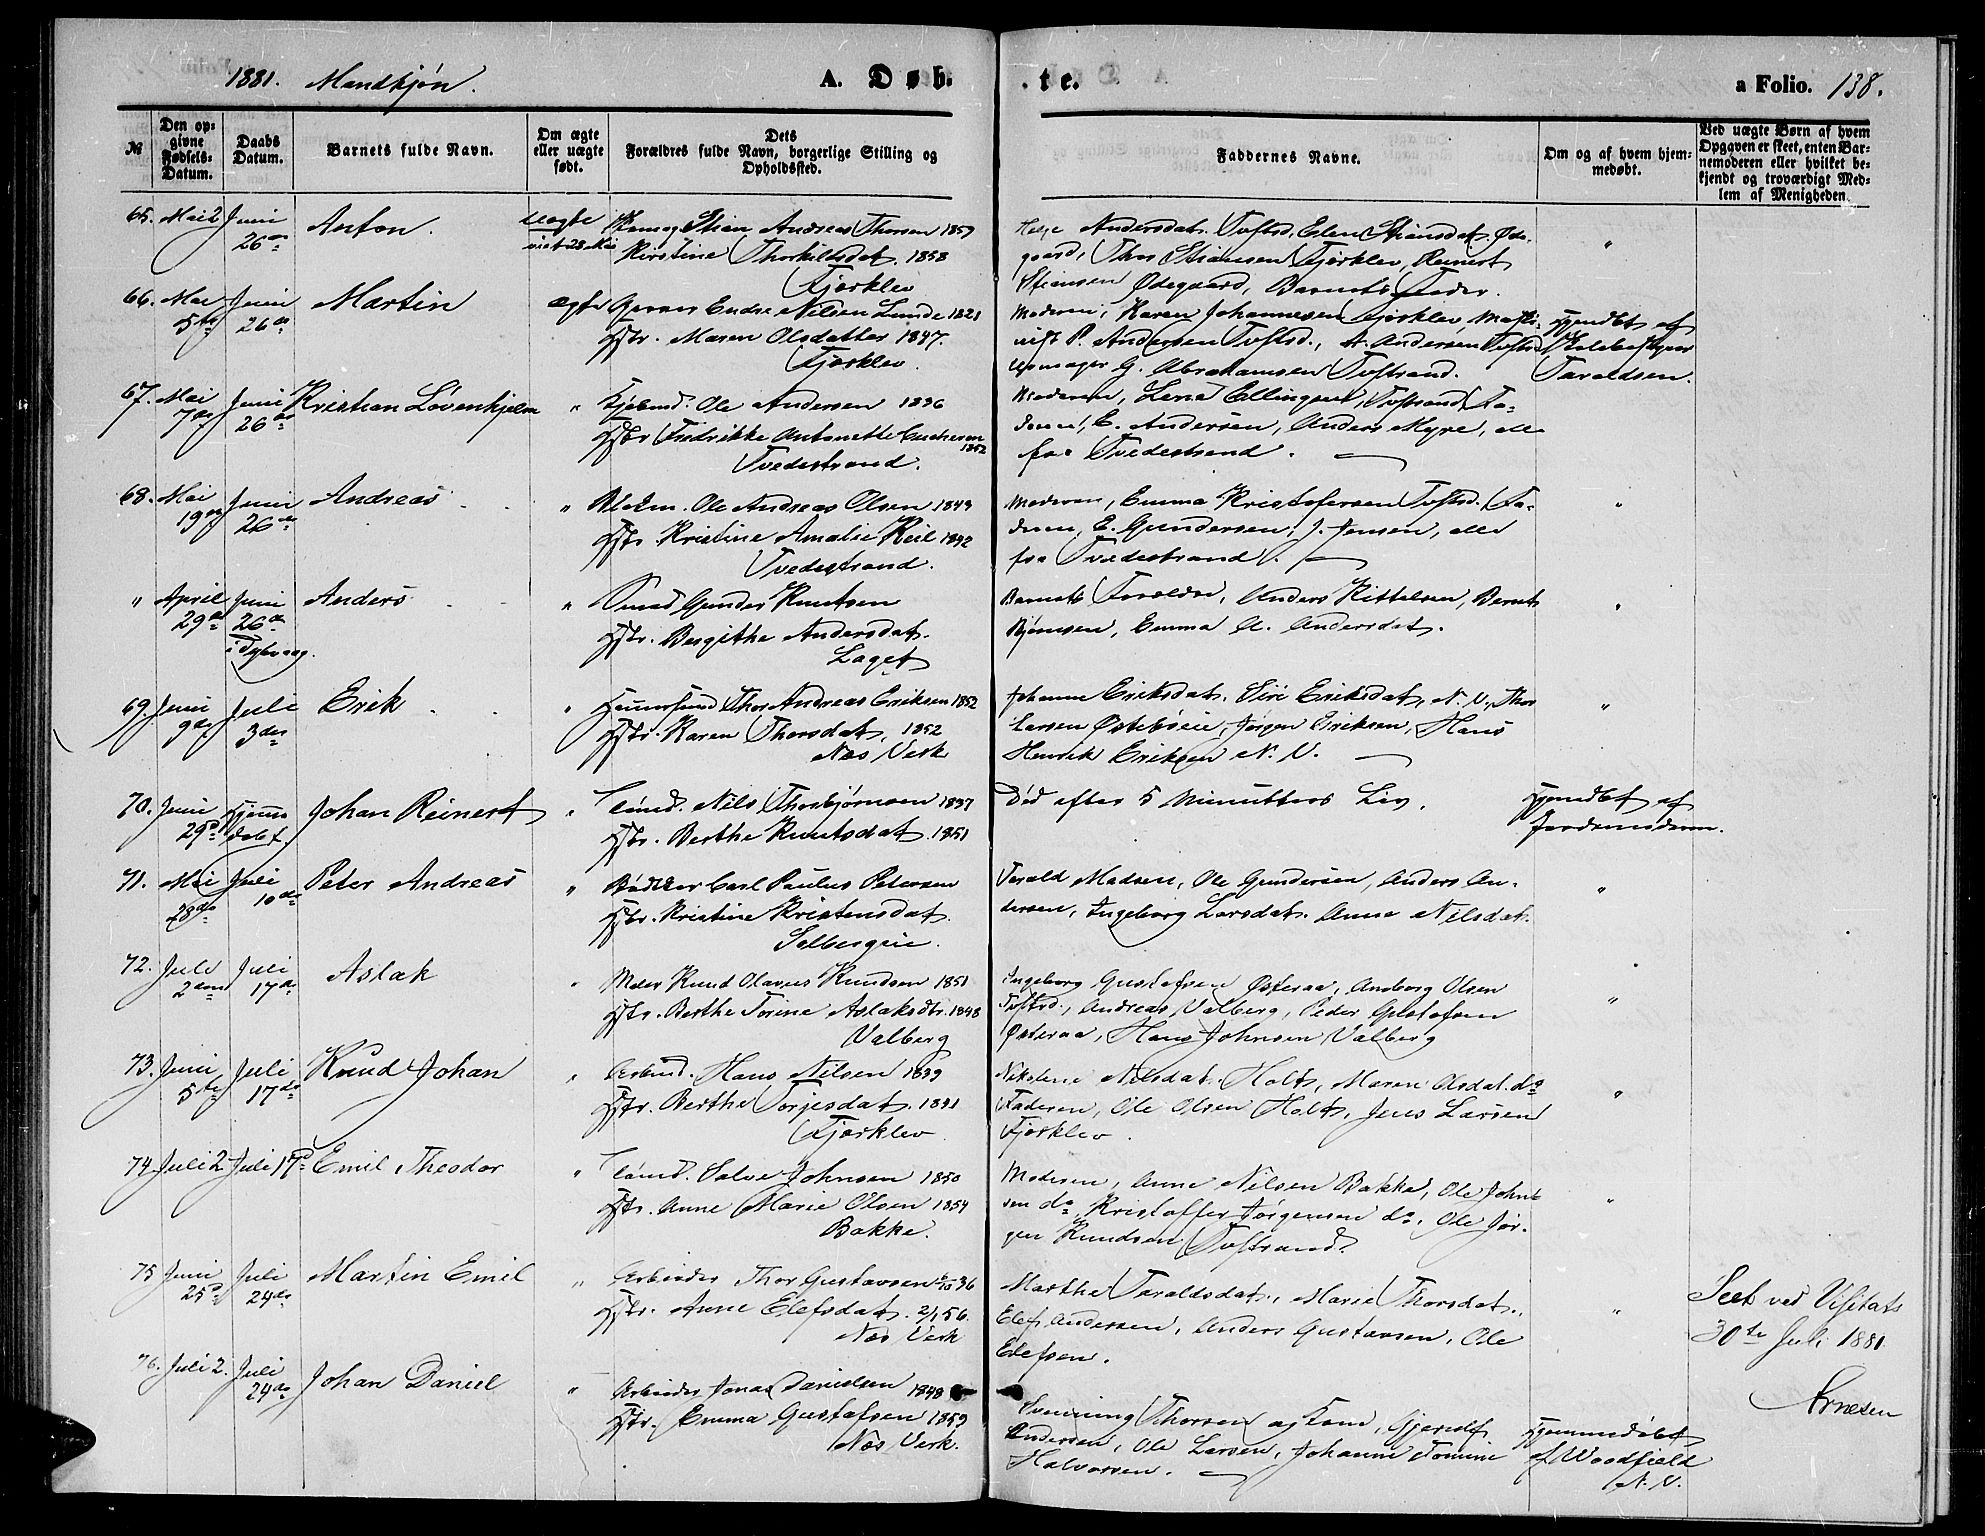 1881. Mandkjøn. A. Døb. . te. a Folio. 138.
№
Den op-
givne
Fødsels-
Datum.
Daabs
Datum.
Barnets fulde Navn.
Om ægte
eller uægte
født.
Dets
Forældres fulde Navn, borgerlige Stilling og
Opholdssted.
Faddernes Navne.
Om og af hvem hjem-
medøbt.
Ved uægte Børn af hvem
Opgaven er skeet, enten Bar-
nemoderen eller hvilket be-
kjendt og troværdigt Med-
lem af Menigheden.
65. Mai 2 Juni Anton. uægte Stian Andreas Thorsen 1857
26de viet 28 Mai Kirstine Thorkildsdat. 1858
Fjærklev
Andersdat. Toftsd, Elen Stiansdat. Øde-
gaard, Thor Stiansen Fjærklev, Reinert
Stiansen Ødegaard, Barnets Fader.
"
66. Mai Juni Martin ægte Endre Nilsen Lunde 1821
5te 26de Hstr. Maren Olsdatter 1847.
Fjærklev.
Moderen, Karen Johannesen Fjærklev,
P. Andersen Toftsd., A. Andersen Toftsd
G. Abrahamsen Tvstrand.
Hjemdbt af
Taraldsen.
67. Mai Juni Kristian Løvenhjelm " Kjøbmd. Ole Andersen 1836
7de 26de Hstr Fredrikke Antonette
1852
Tvedestrand.
Moderen, Lena Ellingsen, Tvstrand, Fa-
deren, E. Andersen, Anders Myre, alle
fra Tvedestrand.
68. Mai Juni Andreas " Ole Andreas Olsen 1849
19de 26de Hstr Kristine Amalie Keil 1842
Tvedestrand.
Moderen, Emma Kristofersen Toftsd. Fa-
deren, E. Gundersen, J. Jensen, alle
fra Tvedestrand.
"
" April Juni Anders " Smed Gunder Knutsen
29de 26de Hstr. Birgithe Andersdat.
i Dybvaag. Laget
Barnets Forældre, Anders Kittelsen, Bernt
Bjørnsen, Emma A. Andersdat.
"
69. Juni Juli Erik " Thor Andreas Eriksen 1852
9de 3die Hstr. Karen Thorsdat. 1852
Næs Verk
Johanne Eriksdat. Siri Eriksdat, N. V., Thor
Larsen Østebøeie, Jørgen Eriksen, Hans
Henrik Eriksen N. V.
"
70. Juni Hjemme Johan Reinert " Nils Thorbjørnsen 1837
29de døbt. Hstr. Berthe Knutsdat. 1851
Død efter 5 Minutters Liv.
Hjemdbt af
Jordemoderen.
71. Mai Juli Peter Andreas " Bødker Carl Paulus Petersen
28de 10de Hstr. Kristine Kristensdat.
Solbergeie.
Terald Madsen, Ole Gundersen, Anders An-
dersen, Ingeborg Larsdat. Anne Nilsdat.
"
72. Juli Juli Aslak " Maler Knud Olavus Knudsen 1851
2den 17de Hstr. Berthe Torine Aslaksdtr. 1848
Valberg
Ingeborg Gustafsen Østeraa, Anborg Olsen
Toftsd., Andreas Valberg, Peder Gustafsen
Østeraa, Hans Johnsen Valberg
"
73. Juni Juli Knud Johan " Arbmd. Hans Nilsen 1839
5te 17de Hstr. Berthe Torjesdat. 1841
Fjærklev
Nikoline Nilsdat. Holt, Maren Olsdat. do
Faderen, Ole Olsen Holt, Jens Larsen
Fjærklev.
"
74 Juli 2 Juli 17de Emil Theodor " Salve Johnsen 1850
Hstr. Anne Marie Olsen 1854
Bakke.
Moderen, Anne Nilsen Bakke, Ole John-
sen do, Kristoffer Jørgensen do, Ole Jør-
gen Knudsen Tvstrand.
"
75 Juni Juli Martin Emil " Arbeider Thor Gustavsen 36
25de 24de Hstr. Anne Elefsdat. 2/1 56.
Næs Verk
Marthe Taraldsdat., Marie Thorsdat.,
Elef Andersen, Anders Gustavsen, Ole
Elefsen.
"
Seet ved Visitats
30te Juli 1881
Arnesen
76. Juli 2. Juli Johan Daniel " Arbeider Jonas Danielsen 1848
24de Hstr. Emma Gustafsen 1859
Næs Verk.
Svenning Thorsen og Kone, Gjerulf
Andersen, Ole Larsen, Johanne Tomine
Halvorsen.
Hjemmedøbt
af Woodfield
N. V.